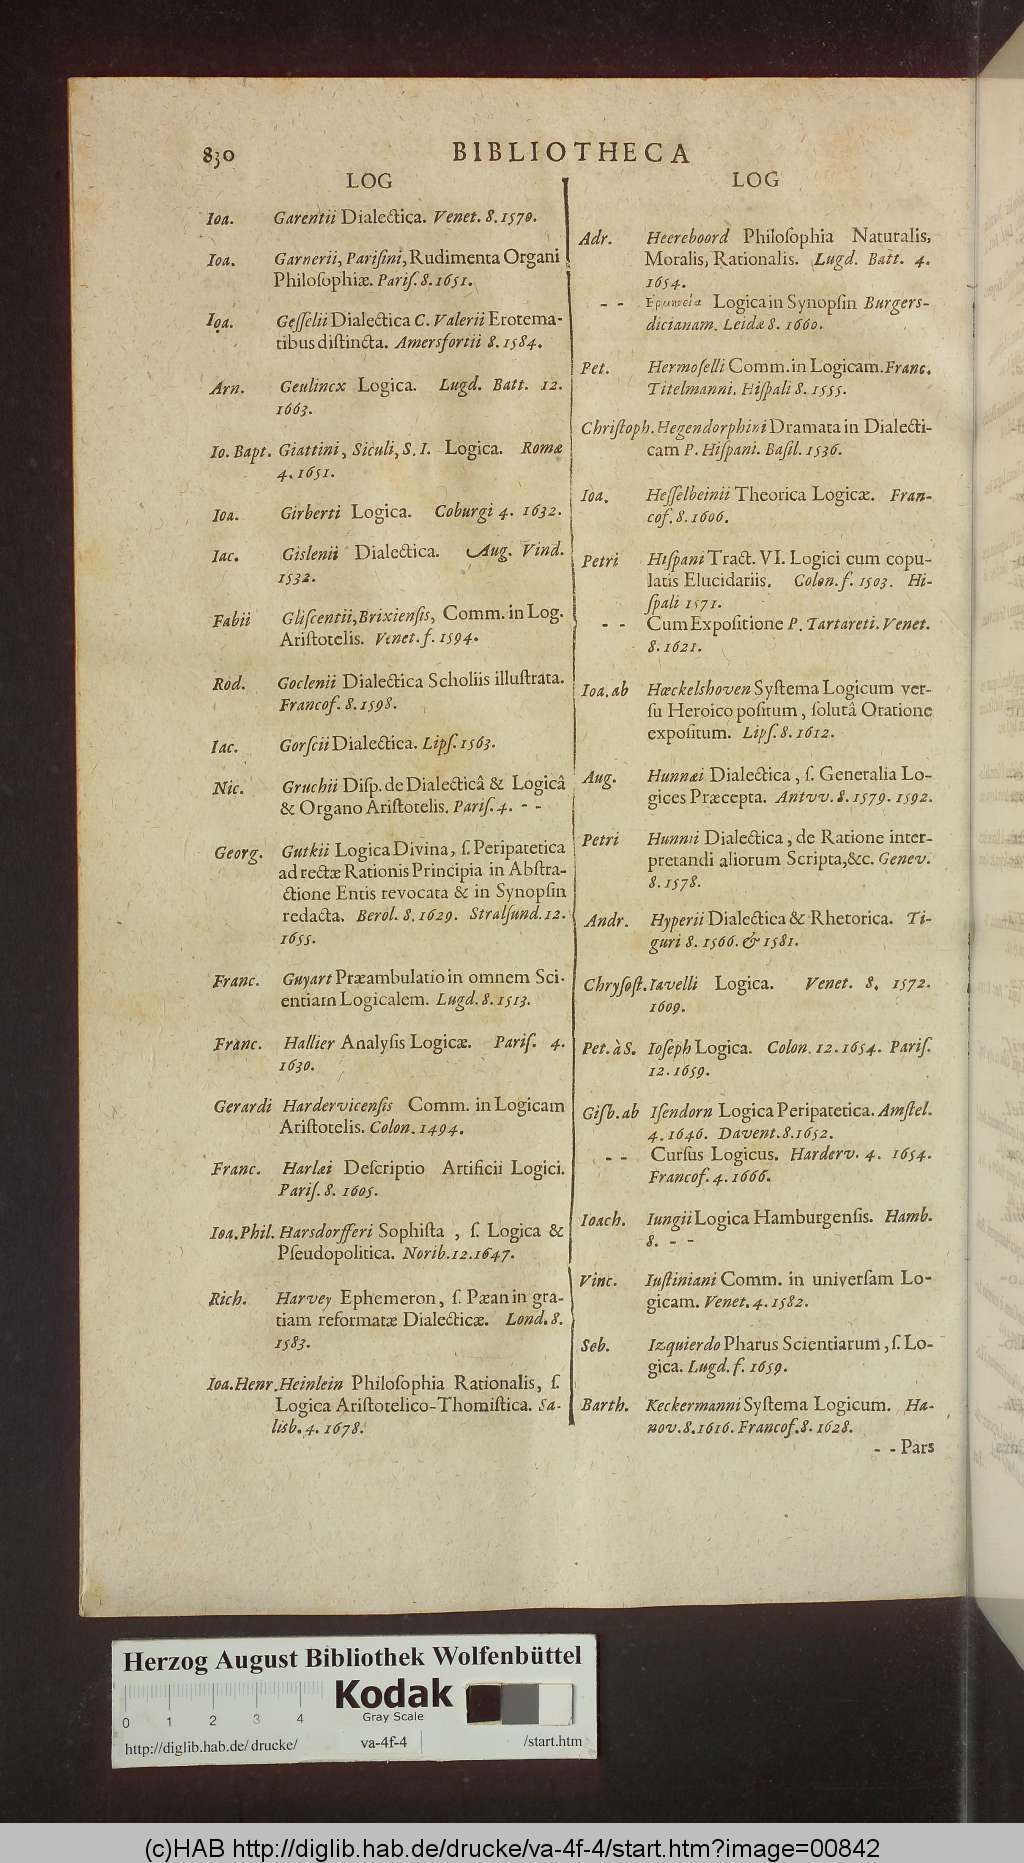 830
BIBLIOTHECA
LOG
Ioa. Garentii Dialectica. Venet. 8. 1570.
Ioa. Garnerii, Parisini, Rudimenta Organi
Philosophiæ. Paris. 8. 1651.
Ioa. Gesselii Dialectica C. Valerii Erotema-
tibus distincta. Amersfortii 8. 1584.
Arn. Geulincx Logica. Lugd. Batt. 12.
1663.
Io. Bapt. Giattini, Siculi, S. I. Logica. Romæ
4. 1651.
Ioa. Girberti Logica. Coburgi 4. 1632.
Iac. Gislenii Dialectica. Aug. Vind.
1532.
Fabii Gliscentii, Brixiensis, Comm. in Log.
Aristotelis. Venet. f. 1594.
Rod. Goclenii Dialectica Scholiis illustrata.
Francof. 8. 1598.
Iac. Gorscii Dialectica. Lips. 1563.
Nic. Gruchii Disp. de Dialecticâ & Logicâ
& Organo Aristotelis. Paris. 4. - -
Georg. Gutkii Logica Divina, s. Peripatetica
ad rectæ Rationis Principia in Abstra-
ctione Entis revocata & in Synopsin
redacta. Berol. 8. 1629. Stralsund. 12.
1655.
Franc. Guyart Præambulatio in omnem Sci-
entiam Logicalem. Lugd. 8. 1513.
Franc. Hallier Analysis Logicæ. Paris. 4.
1630.
Gerardi Hardervicensis Comm. in Logicam
Aristotelis. Colon. 1494.
Franc. Harlæi Descriptio Artificii Logici.
Paris. 8. 1605.
Ioa. Phil. Harsdorfferi Sophista, s. Logica &
Pseudopolitica. Norib. 12. 1647.
Rich. Harvey Ephemeron, s. Pæan in gra-
tiam reformatæ Dialecticæ. Lond. 8.
1583.
Ioa. Henr. Heinlein Philosophia Rationalis, s.
Logica Aristotelico-Thomistica. Sa-
lisb. 4. 1678.
LOG
Adr. Heereboord Philosophia Naturalis,
Moralis, Rationalis. Lugd. Batt. 4.
1654.
- - Logica in Synopsin Burgers-
dicianam. Leidæ 8. 1660.
Pet. Hermoselli Comm. in Logicam. Franc.
Titelmanni. Hispali 8. 1555.
Christoph. Hegendorphini Dramata in Dialecti-
cam P. Hispani. Basil. 1536.
Ioa. Hesselbeinii Theorica Logicæ. Fran-
cof. 8. 1606.
Petri Hispani Tract. VI. Logici cum copu-
latis Elucidariis. Colon. f. 1503. Hi-
spali 1571.
- - Cum Expositione P. Tartareti. Venet.
8. 1621.
Ioa. ab Hœckelshoven Systema Logicum ver-
su Heroico positum, solutâ Oratione
expositum. Lips. 8. 1612.
Aug. Hunnæi Dialectica, s. Generalia Lo-
gices Præcepta. Antvv. 8. 1579. 1592.
Petri Hunnii Dialectica, de Ratione inter-
pretandi aliorum Scripta, &c. Genev.
8. 1578.
Andr. Hyperii Dialectica & Rhetorica. Ti-
guri 8. 1566. & 1581.
Chrysost. Iavelli Logica. Venet. 8. 1572.
1609.
Pet. à S. Ioseph Logica. Colon. 12. 1654. Paris.
12. 1659.
Gisb. ab Isendorn Logica Peripatetica. Amstel.
4. 1646. Davent. 8. 1652.
- - Cursus Logicus. Harderv. 4. 1654.
Francof. 4. 1666.
Ioach. Iungii Logica Hamburgensis. Hamb.
8. - -
Vinc. Iustiniani Comm. in universam Lo-
gicam. Venet. 4. 1582.
Seb. Izquierdo Pharus Scientiarum, s. Lo-
gica. Lugd. f. 1659.
Barth. Keckermanni Systema Logicum. Ha-
nov. 8. 1616. Francof. 8. 1628.
- - Pars
Herzog August Bibliothek Wolfenbüttel
Kodak
Gray Scale
0 1 2 3 4
http://diglib.hab.de/drucke/ va-4f-4 /start.htm
(c)HAB http://diglib.hab.de/drucke/va-4f-4/start.htm?image=00842